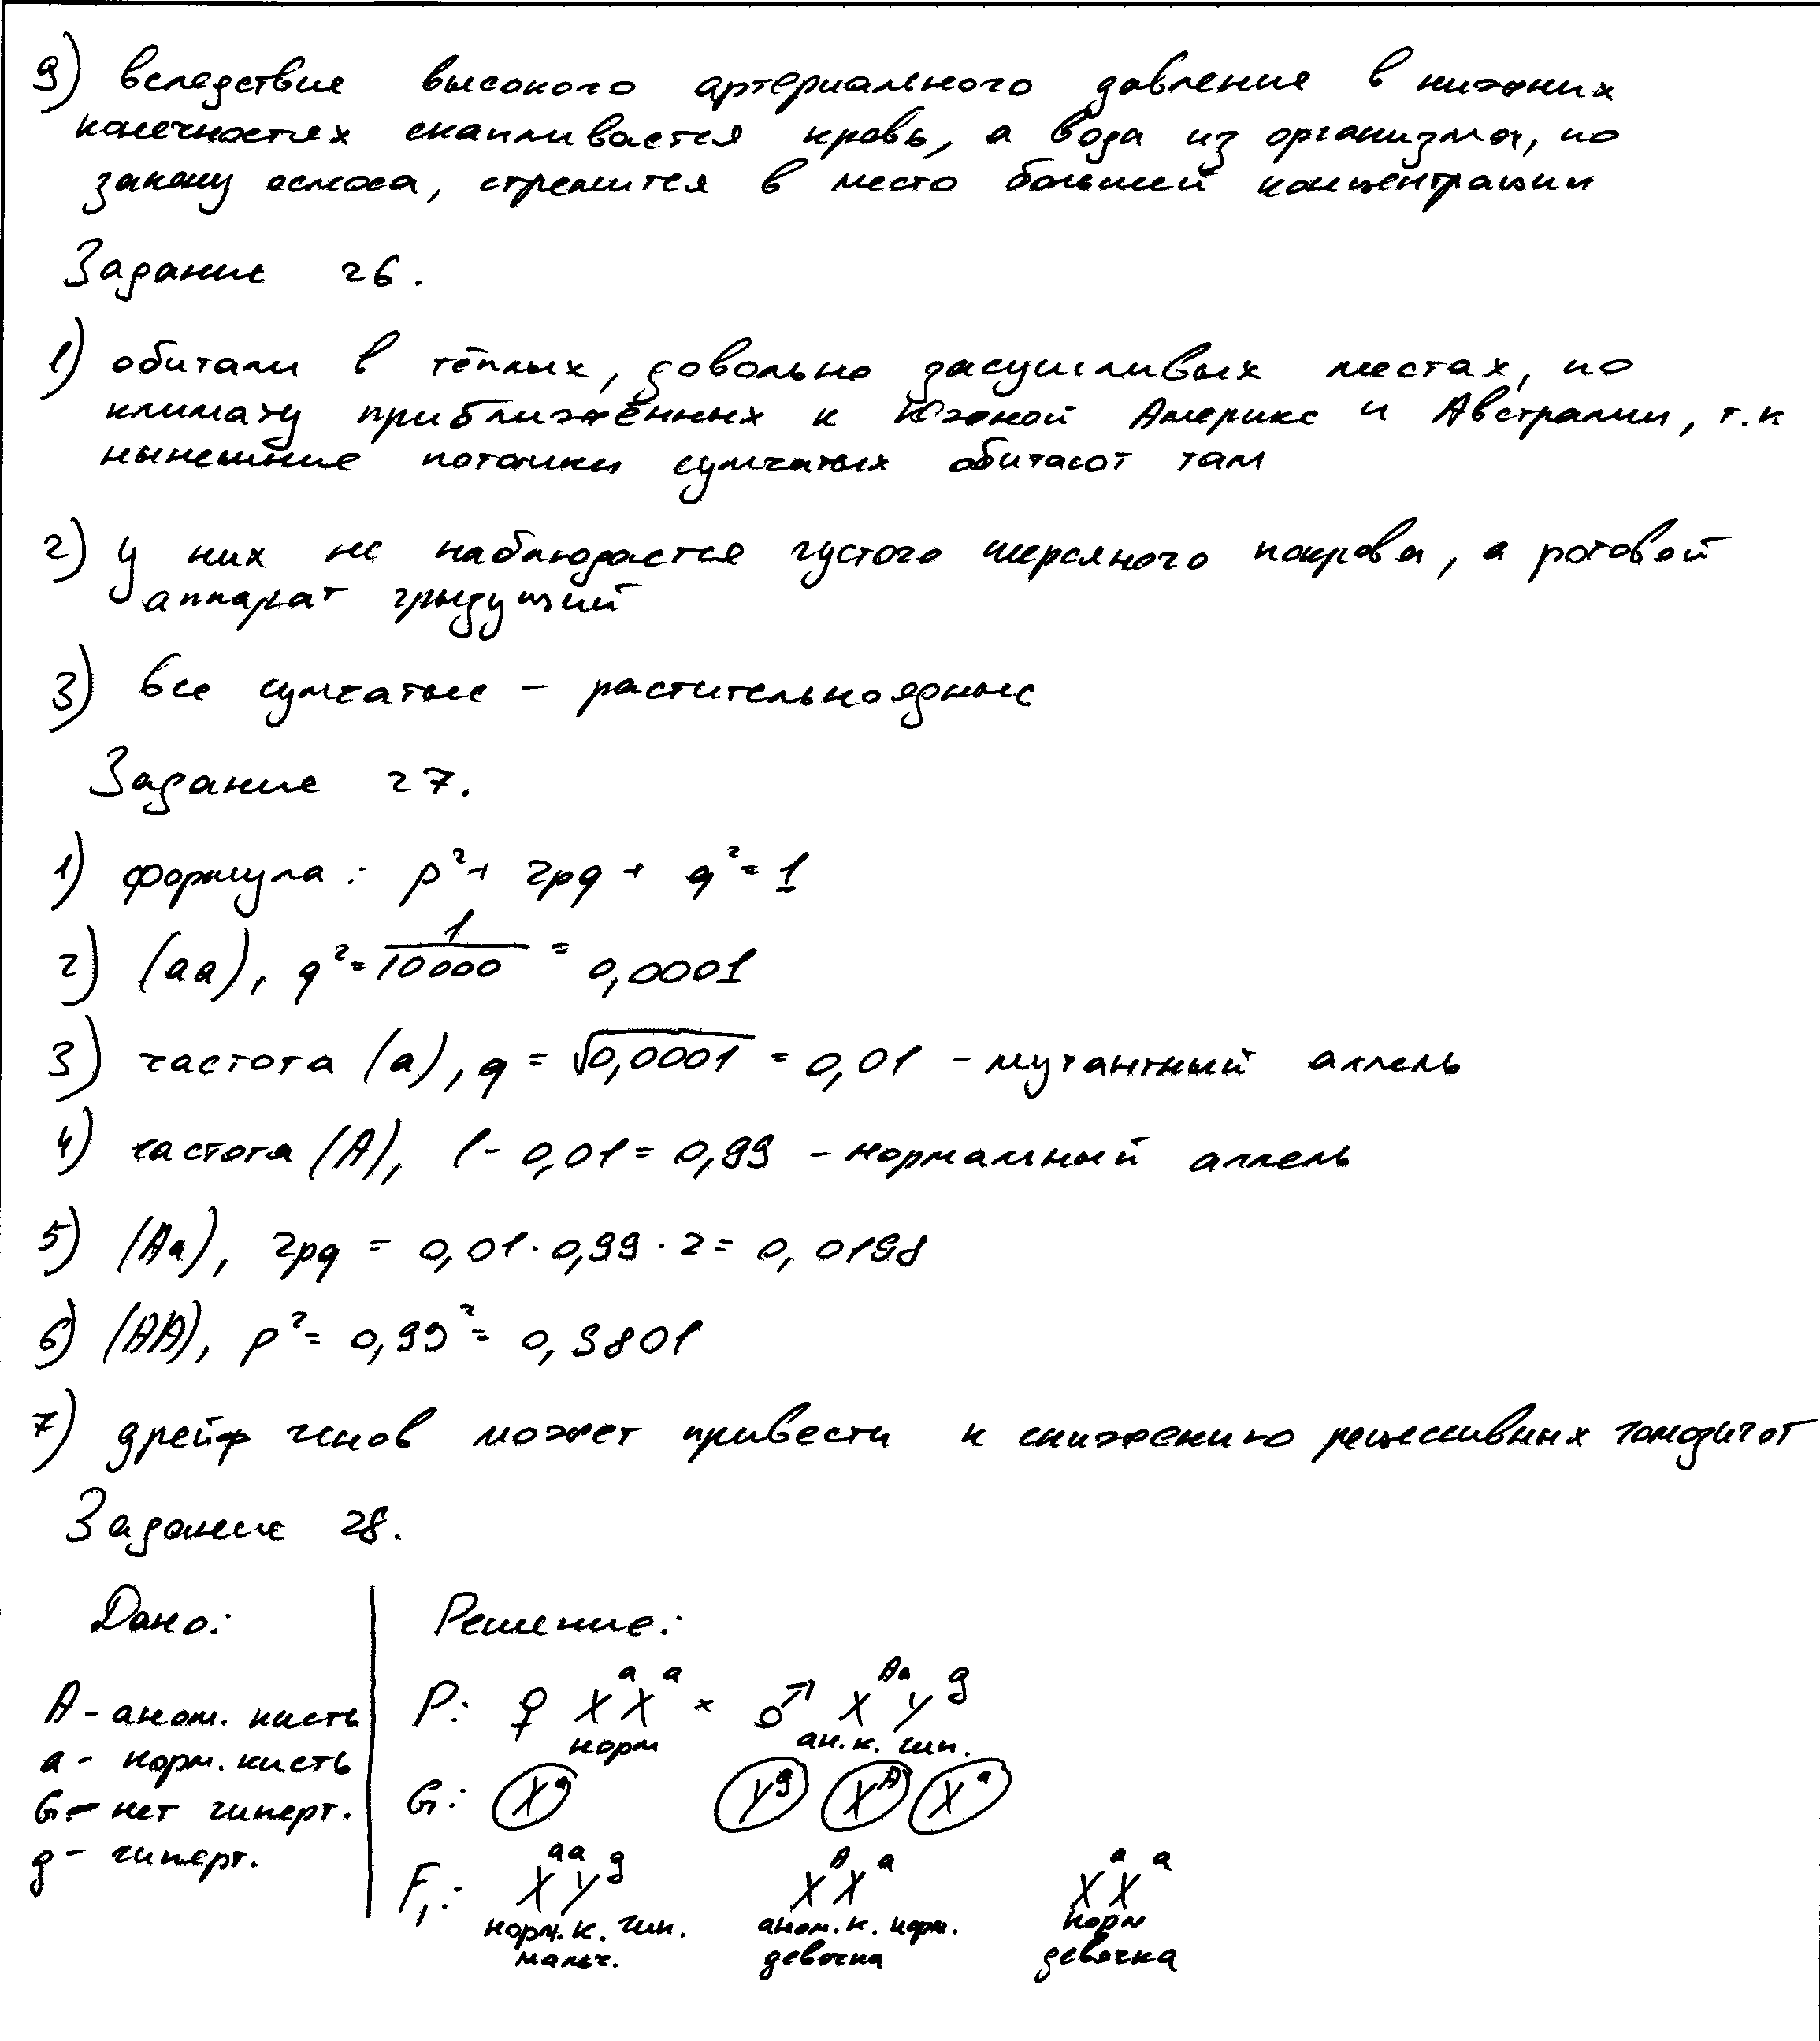 9) вследствие высокого артериального давление в нижних
конечностях скапливается кровь, а вода из организма, по
закону осмоса, стремится в место большей концентрации
Задание 26.
1) обитали в тёплых, довольно засушливых местах, по
климату приближённых к Южной Америке и Австралии, т.к
нынешние потомки сумчатых обитают там
2) у них не наблюдается густого шерсяного покрова, а ротовой
аппарат грызущий
3) все сумчатые - растительноядные
Задание 27.
1) формула: p² + 2pq + q² = 1
2) (aa), q² = 1/10000 = 0,0001
3) частота (a), q = √0,0001 = 0,01 - мутантный аллель
4) частота (A), 1 - 0,01 = 0,99 - нормальный аллель
5) (Aa), 2pq = 0,01 · 0,99 · 2 = 0,0198
6) (AA), p² = 0,99² = 0,9801
7) дрейф генов может привести к снижению рецессивных гомозигот
Задание 28.
Дано:
A - аном. кисть
a - норм. кисть
G - нет гиперт.
g - гиперт.
Решение:
P: ♀ XᵃXᵃ × ♂ XᴬᵃYᵍ
норм ан.к. гип.
G: Xᵃ Yᵍ Xᴬ Xᵃ
F₁: XᵃᵃYᵍ XᴬXᵃ XᵃXᵃ
норм.к. гип. аном.к. норм. норм
мальч. девочка девочка